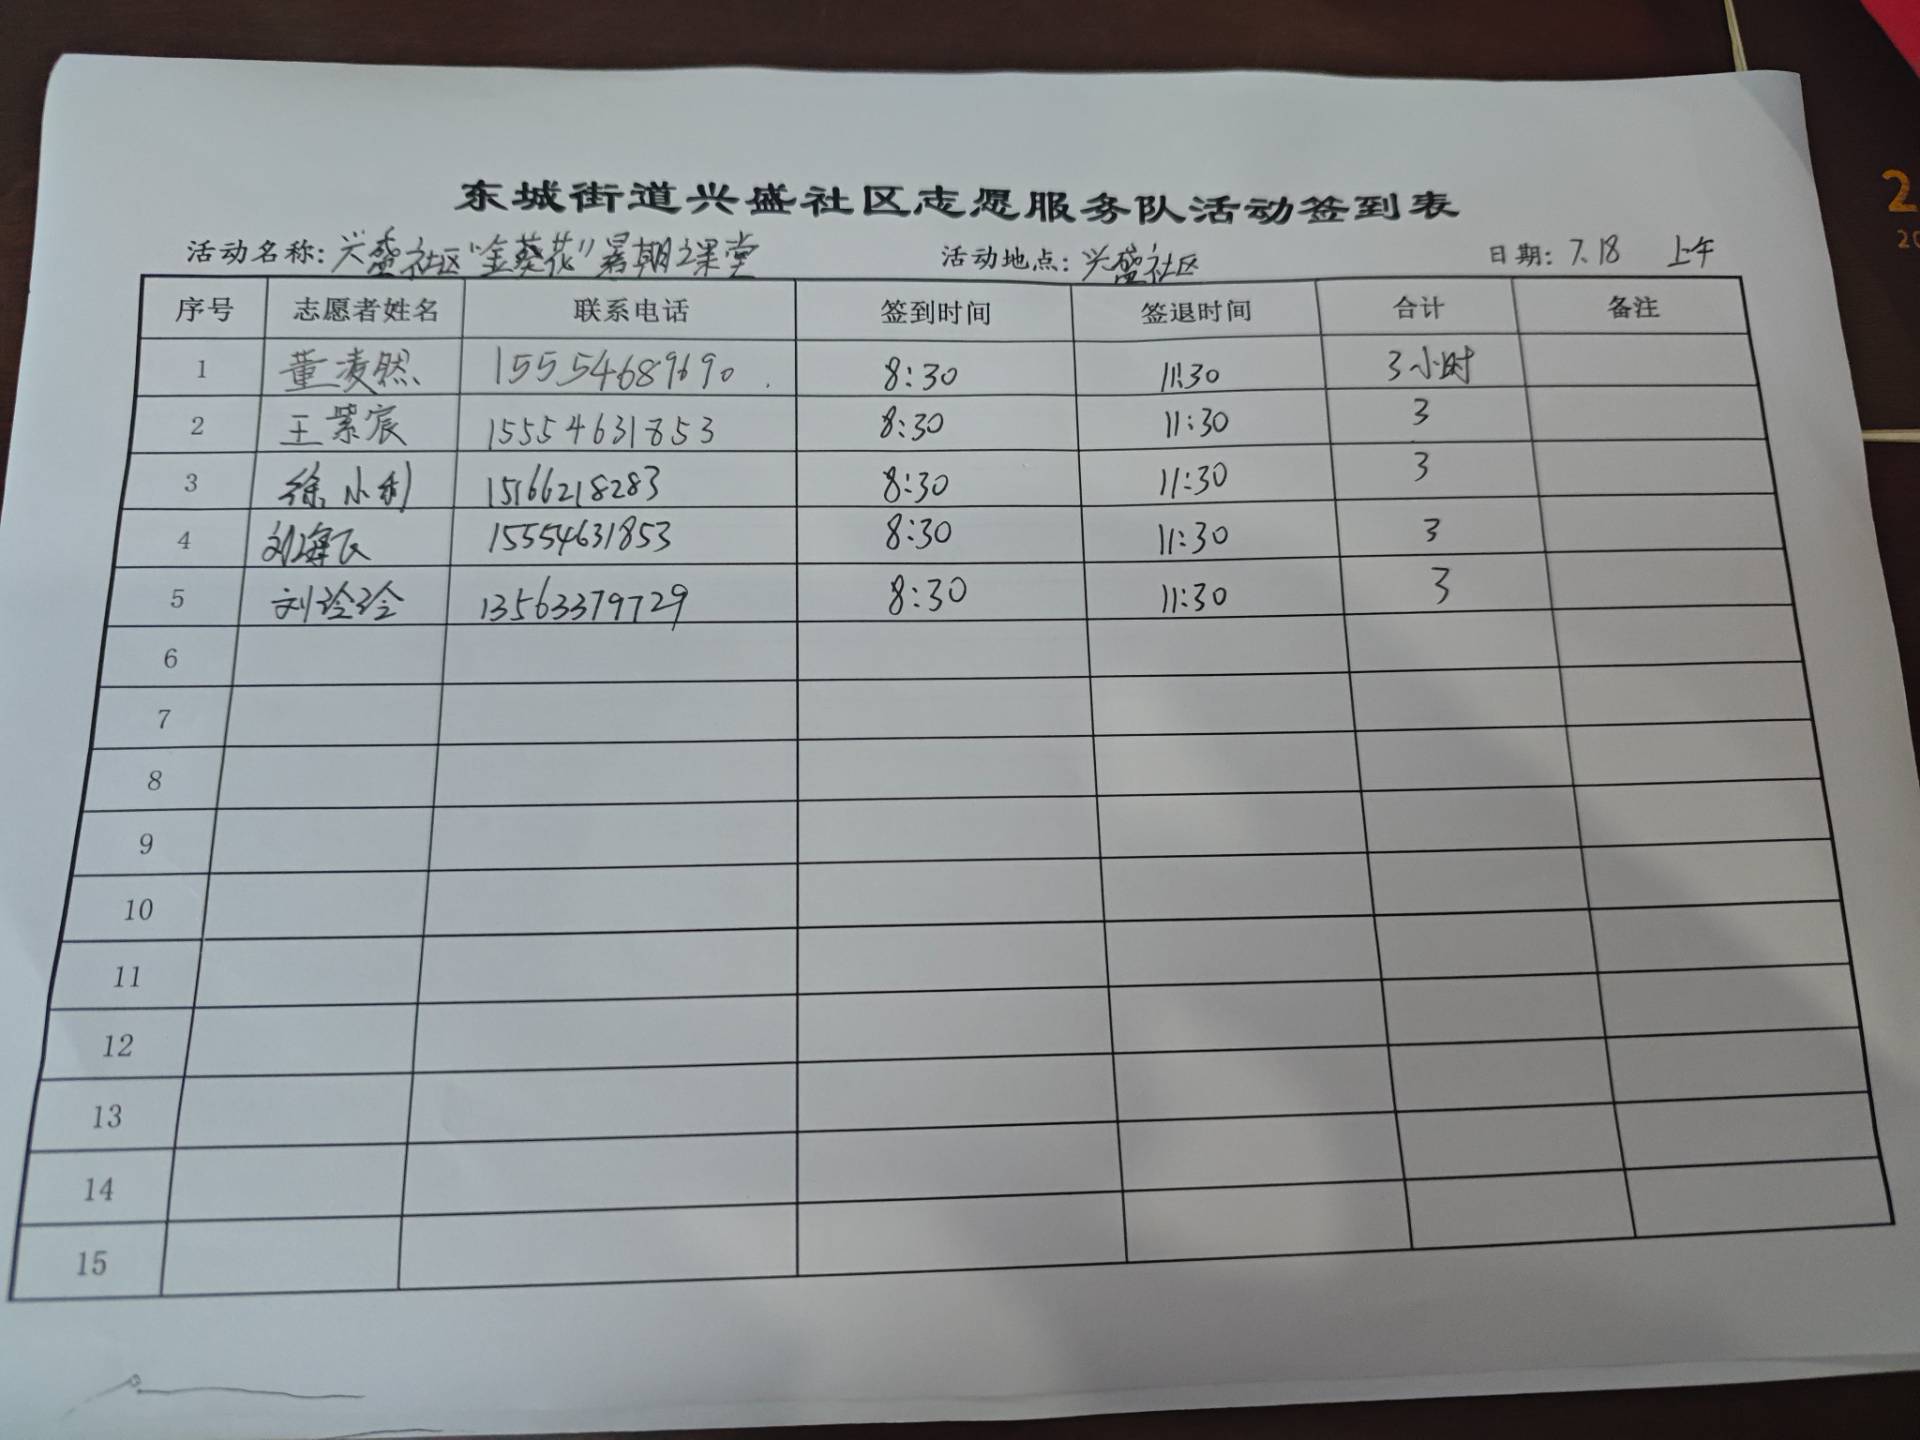 东城街道兴盛社区志愿服务队活动签到表
活动名称: 兴盛社区"金葵花"暑期课堂 活动地点: 兴盛社区 日期: 7.18 上午
序号 志愿者姓名 联系电话 签到时间 签退时间 合计 备注
1 董凌然 15554689690 8:30 11:30 3小时
2 王紫宸 15554631853 8:30 11:30 3
3 徐小利 15166218283 8:30 11:30 3
4 刘海飞 15554631853 8:30 11:30 3
5 刘玲玲 13563379729 8:30 11:30 3
6
7
8
9
10
11
12
13
14
15
2
20